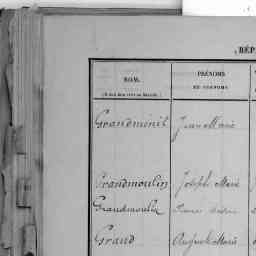 RÉP
NOM. PRÉNOMS
ET SURNOMS
Grandmenil Jean Marie
Grandmoulin Joseph Marie
Grandmoulin Pierre
Grand Auguste Marie